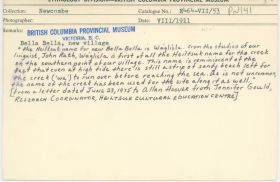 ETHNOLOGY DIVISION—BRITISH COLUMBIA PROVINCIAL MUSEUM
Collection: Newcombe No. E464-VII/53 PN141
Photographer: Date: VIII/1911
Remarks: BRITISH COLUMBIA PROVINCIAL MUSEUM
VICTORIA, B. C.
Bella Bella, new village
"The Heiltsuk name for new Bella Bella is Waglisla. From the studies of our
linguist, John Rath, Waglisla is first of all the Heiltsuk name for the creek
on the southern point of our village. This name is reminiscent of the
fact that even at high tide there is still a strip of sandy beach left for
the creek ('wa) to run over before reaching the sea. As is not uncommon,
the name of the creek has been used for the site along it as well."
[from a letter dated June 23, 1975 to Allan Hoover from Jennifer Gould,
Research Coordinator, Heiltsuk Cultural Education Centre]